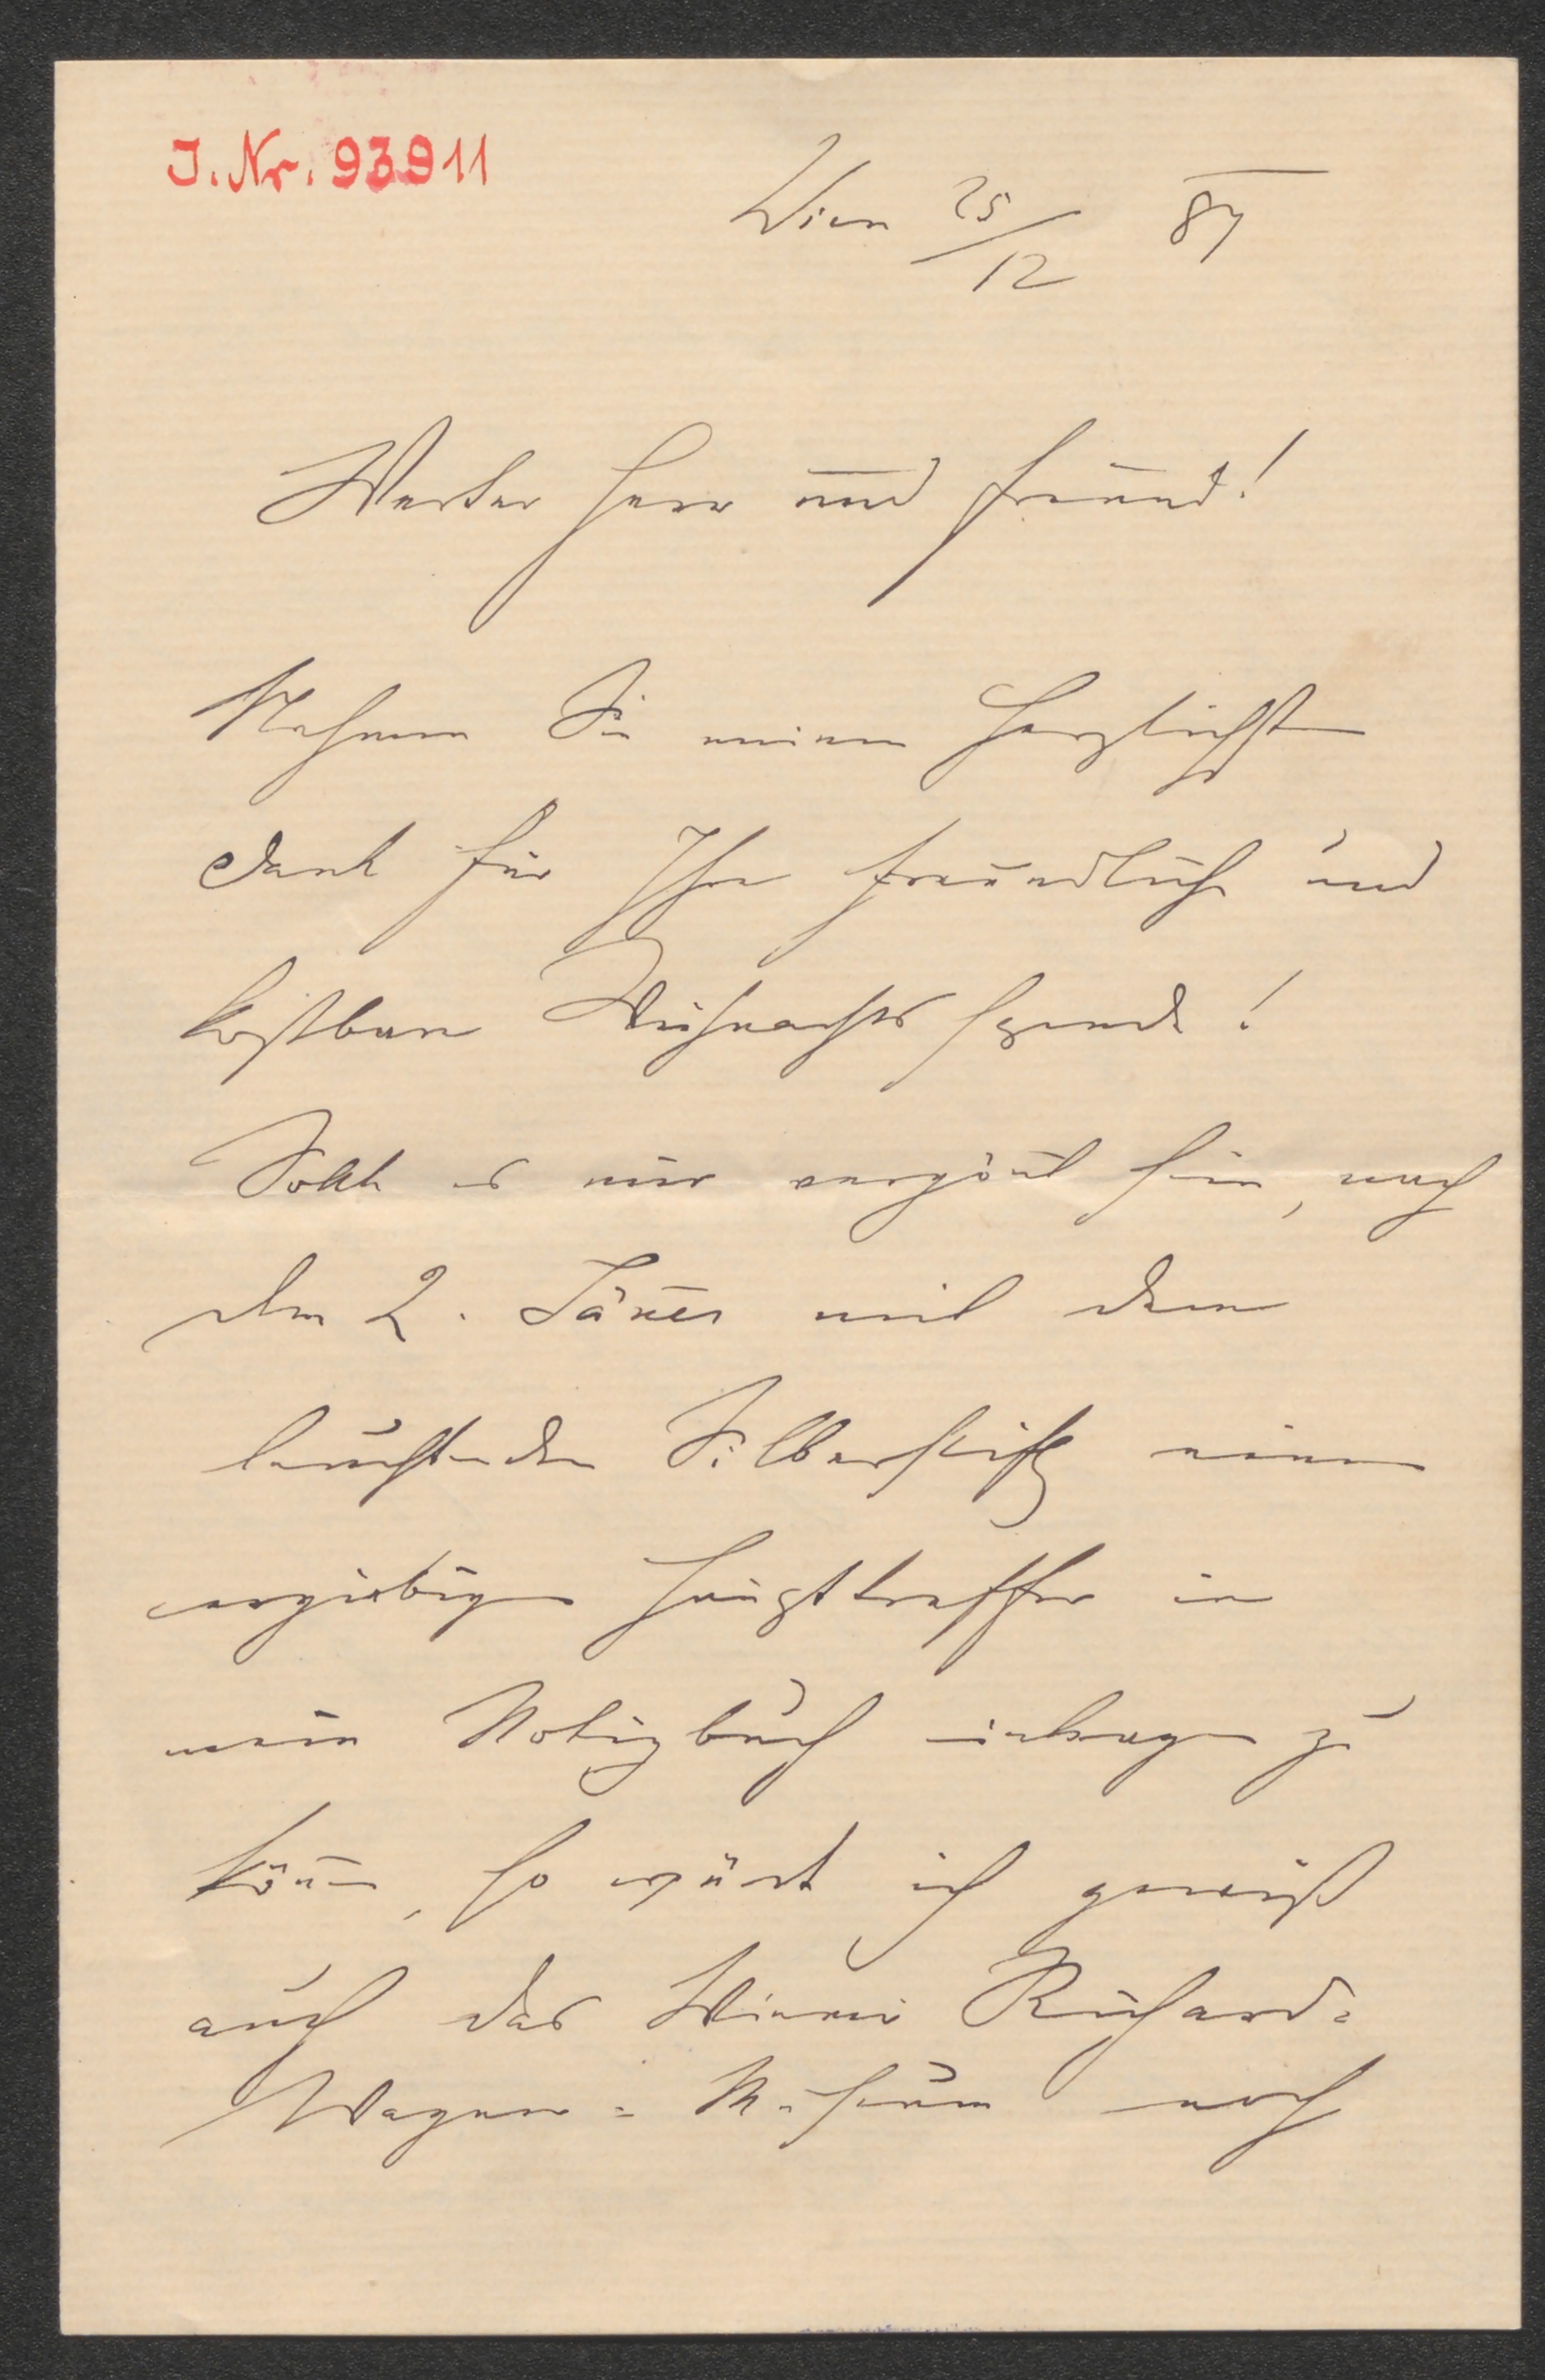 J. Nr. 93911
Wien 25/12 87
Werter Herr und Freund!
Nehmen Sie meinen herzlichsten
Dank für Ihre freundliche und
kostbare Weihnachtsspende!
Sollte es mir vergönt sein, nach
dem 2. Jäner mit dem
leuchtenden Silberstift einen
ergiebigen Haupttreffer in
mein Notizbuch eintragen zu
könen, so würde ich gewiß
auch das Wiener Richard-
Wagner-Museum noch